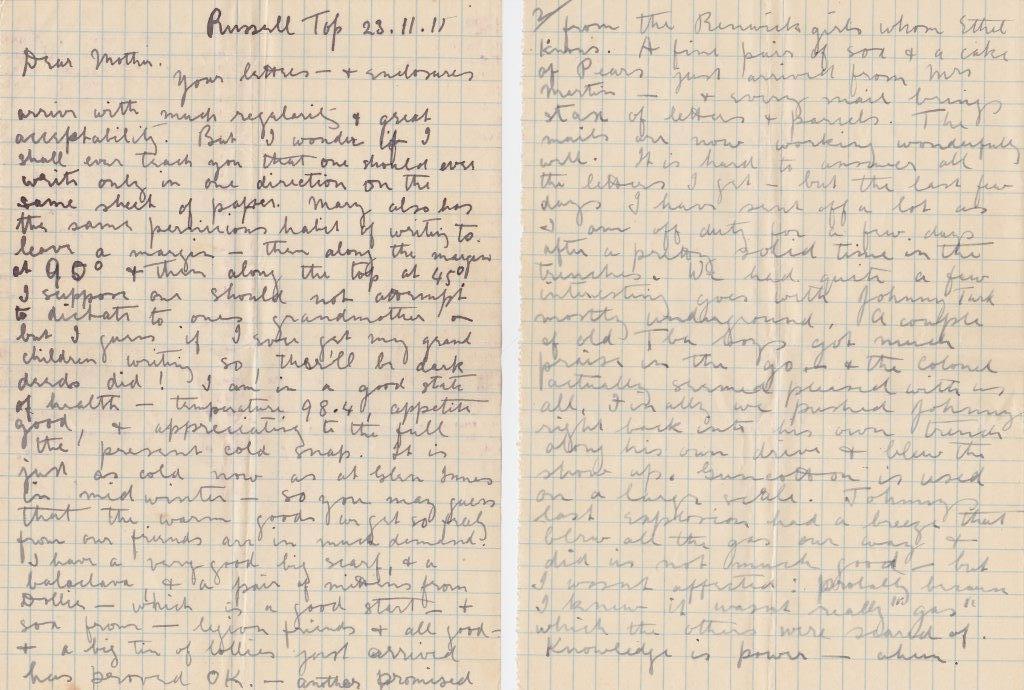 Russell Top 23.11.15
Dear Mother.
Your letters — & enclosures
arrive with much regularity & great
acceptability. But I wonder if I
shall ever teach you that one should ever
write only in one direction on the
same sheet of paper. Mary also has
the same pernicious habit of writing to
leave a margin — then along the margin
at 90° & then along the top at 45°
I suppose one should not attempt
to dictate to ones grandmother
but I guess if I ever get my grand
children writing so, there'll be dark
deeds did! I am in a good state
of health — temperature 98.4, appetite
good, & appreciating to the full
the present cold snap. It is
just as cold now as at Glen Innes
in mid winter — so you may guess
that the warm goods we get so freely
from our friends are in much demand.
I have a very good big scarf, & a
balaclava, & a pair of mittens from
Dollie — which is a good start — &
sox from — legion friends & all good —
& a big tin of lollies just arrived
has proved OK. — another promised
2/ from the Renwick girls whom Ethel
knows. A fine pair of sox & a cake
of Pears just arrived from Mrs
Martin — & every mail brings
stax of letters & parcels. The
mails are now working wonderfully
well. It is hard to answer all
the letters I get — but the last few
days I have sent off a lot as
I am off duty for a few days
after a pretty solid time in the
trenches. We had quite a few
interesting goes with Johnny Turk
mostly underground. A couple
of old boys got much
praise in the go — & the Colonel
actually seemed pleased with us
all. Finally we pushed Johnny
right back into his own trench
along his own drive & blew the
show up. Guncotton is used
on a large scale. Johnny's
last explosion had a breeze that
blew all the gas our way &
did us not much good — but
I wasn't affected: probably because
I knew it wasn't really "gas"
which the others were scared of.
Knowledge is power — ahem.